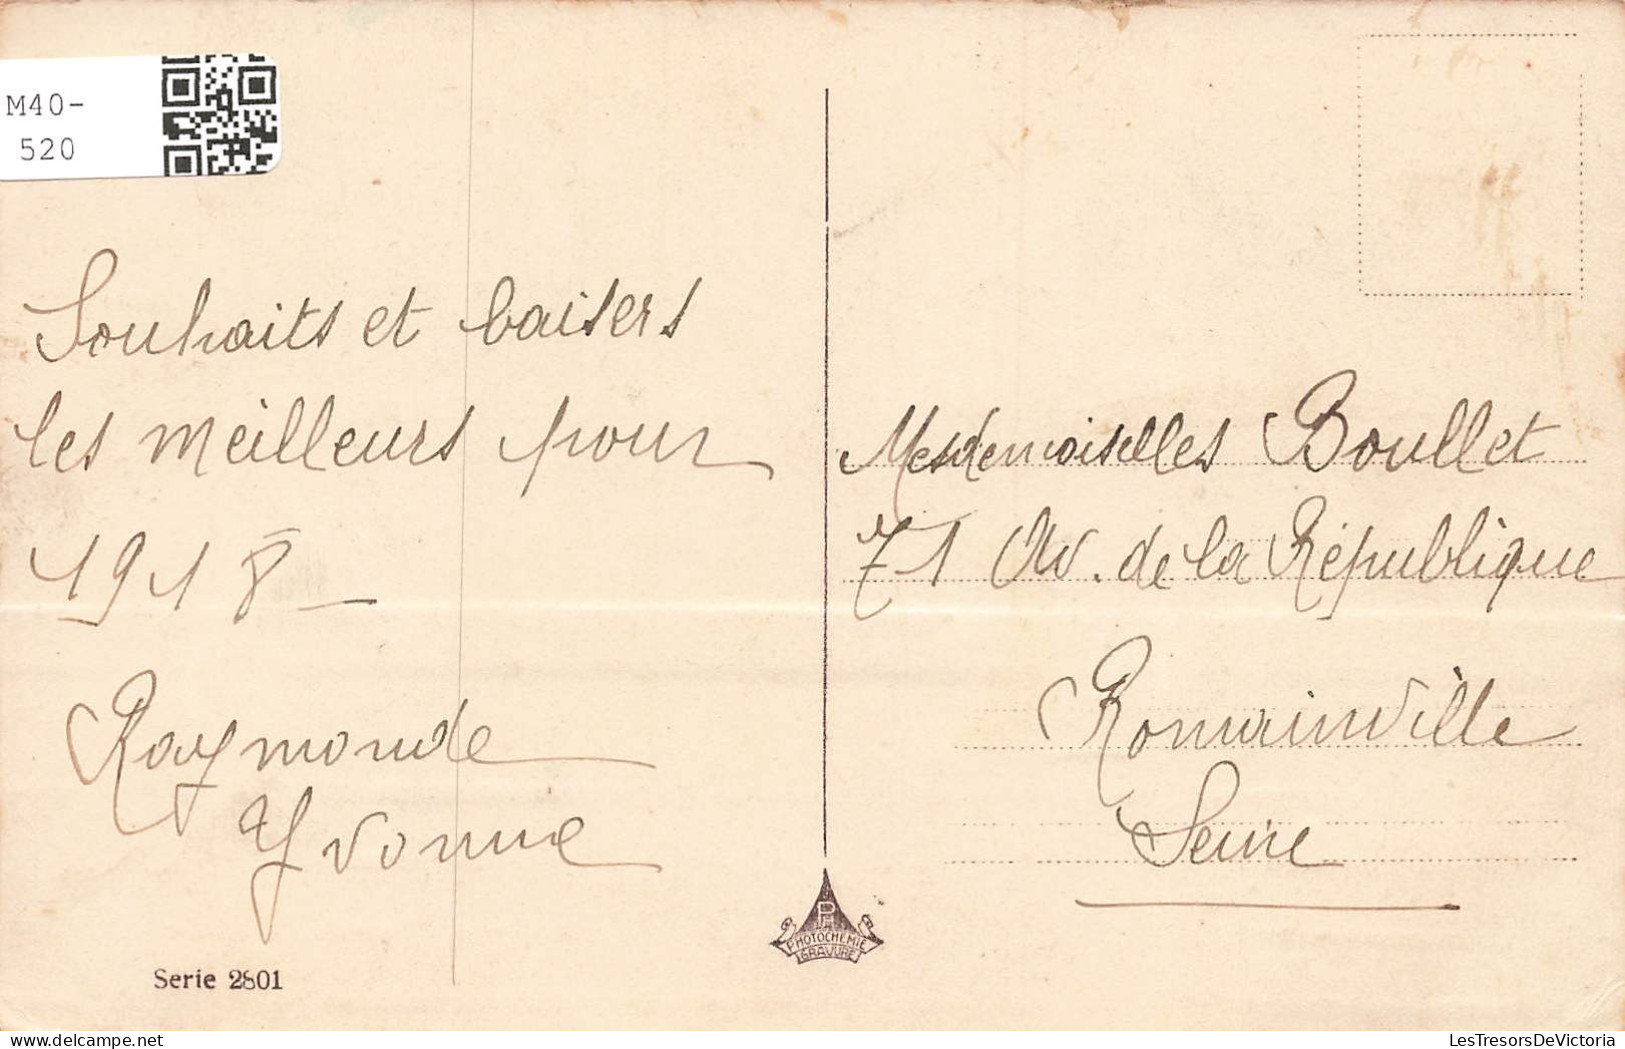 M40-
520
Souhaits et baisers
les meilleurs pour
1918
Raymonde
Yvonne
Serie 2801
Mesdemoiselles Boullet
71 Av. de la République
Romainville
Seine
P
PHOTOCHEMIE
GRAVURE
delcampe.net
LesTresorsDeVictoria